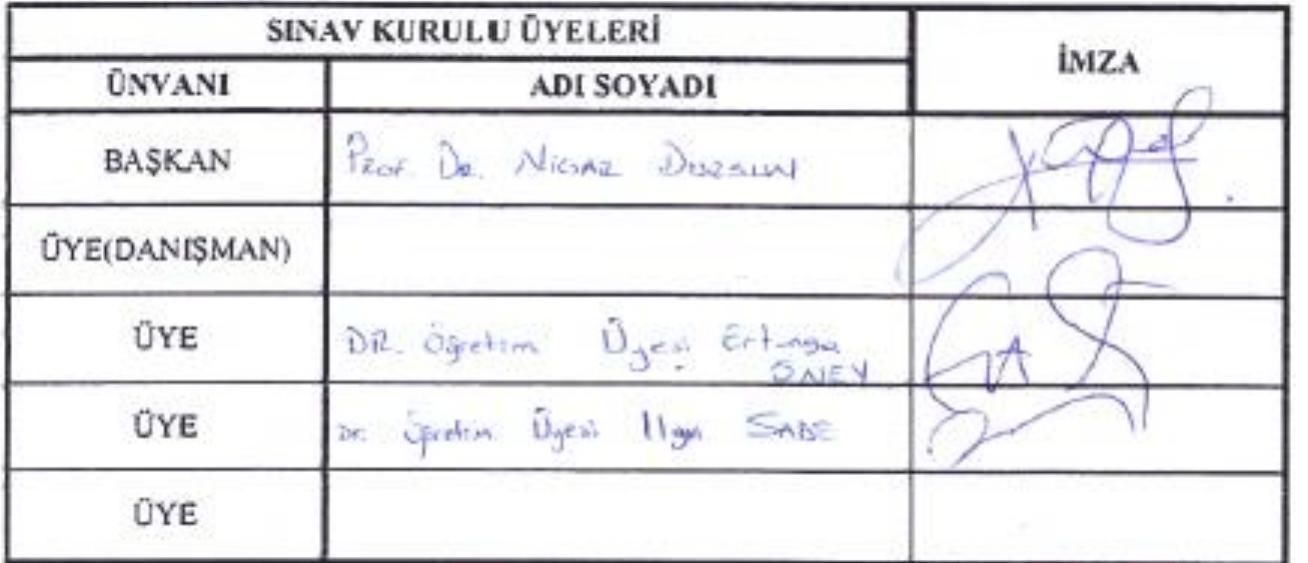 SINAV KURULU ÜYELERİ
İMZA
ÜNVANI ADI SOYADI
BAŞKAN Prof. Dr. Nigar Dursun
ÜYE(DANIŞMAN)
ÜYE DR. Öğretim Üyesi Ertunga
ÖNEY
ÜYE Dr. Öğretim Üyesi
ÜYE